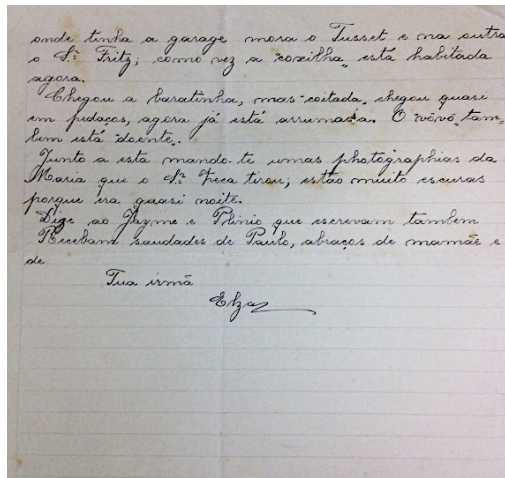 onde tinha a garage mora o Tusset e na outra
o Sr. Fritz; como vez a "coxilha" está habitada
agora.
Chegou a baratinha, mas coitada, chegou quasi
em pedaços, agora já está arrumada. O "vôvô" tam-
bem está doente.
Junto a esta mando-te umas photographias da
Maria que o Sr. Zeca tirou; estão muito escuras
porque era quasi noite.
Dige ao Jayme e Plinio que escrevam tambem
Recebam saudades de Paulo, abraços de mamãe e
de
Tua irmã
Elza